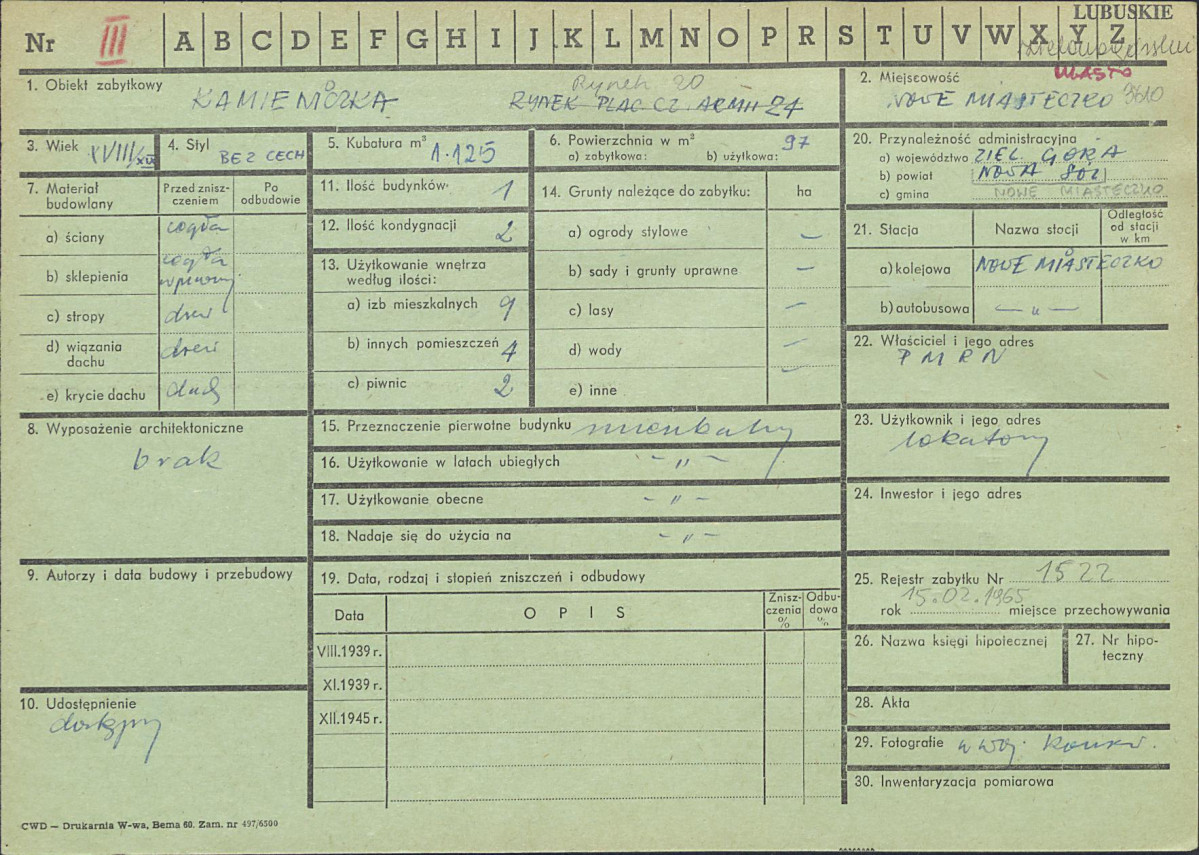 LUBUSKIE
Nr III A B C D E F G H I J K L M N O P R S T U V W X Y Z
1. Obiekt zabytkowy
KAMIENICZKA
Rynek 20
RYNEK PLAC CZ. ARMII 24
2. Miejscowość
MIASTO
NOWE MIASTECZKO
3. Wiek XVIII/XIX
4. Styl BEZ CECH
5. Kubatura m³ 1.125
6. Powierzchnia w m² 97
a) zabytkowa: b) użytkowa:
20. Przynależność administracyjna
a) województwo ZIEL. GÓRA
b) powiat NOWA SÓL
c) gmina NOWE MIASTECZKO
7. Materiał budowlany
Przed zniszczeniem
Po odbudowie
a) ściany cegła
b) sklepienia cegła
c) stropy drew
d) wiązania dachu drew
e) krycie dachu dach
11. Ilość budynków 1
12. Ilość kondygnacji 2
13. Użytkowanie wnętrza
według ilości:
a) izb mieszkalnych 9
b) innych pomieszczeń 4
c) piwnic 2
14. Grunty należące do zabytku: ha
a) ogrody stylowe –
b) sady i grunty uprawne –
c) lasy –
d) wody –
e) inne –
21. Stacja Nazwa stacji Odległość od stacji w km
a) kolejowa NOWE MIASTECZKO
b) autobusowa — „ —
22. Właściciel i jego adres
PMRN
8. Wyposażenie architektoniczne
brak
15. Przeznaczenie pierwotne budynku mieszkalny
16. Użytkowanie w latach ubiegłych – „ –
17. Użytkowanie obecne – „ –
18. Nadaje się do użycia na – „ –
23. Użytkownik i jego adres
lokatorzy
24. Inwestor i jego adres
9. Autorzy i data budowy i przebudowy
19. Data, rodzaj i stopień zniszczeń i odbudowy
Data OPIS Zniszczenia % Odbudowa %
VIII.1939 r.
XI.1939 r.
XII.1945 r.
25. Rejestr zabytku Nr 1522
15.02.1965
rok miejsce przechowywania
26. Nazwa księgi hipotecznej
27. Nr hipoteczny
10. Udostępnienie
dostępny
28. Akta
29. Fotografie w woj. konserw.
30. Inwentaryzacja pomiarowa
CWD — Drukarnia W-wa, Bema 60. Zam. nr 497/6500